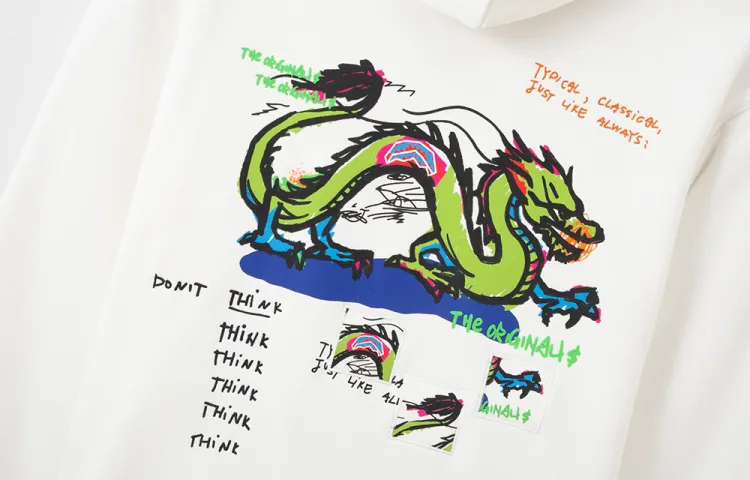 THE ORGINALI$
THE ORGINALI$
TYPICAL, CLASSICAL,
JUST LIKE ALWAYS;
DON'T THINK
THINK
THINK
THINK
THINK
THINK
THE ORGINALI$
TY
LA
JUST LIKE ALI
GINALI$